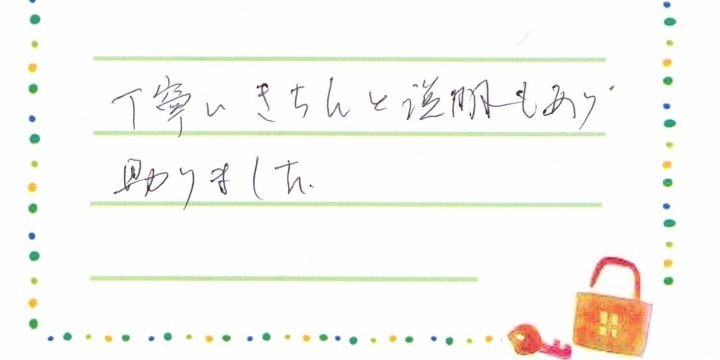 丁寧にきちんと説明もあり
助りました.